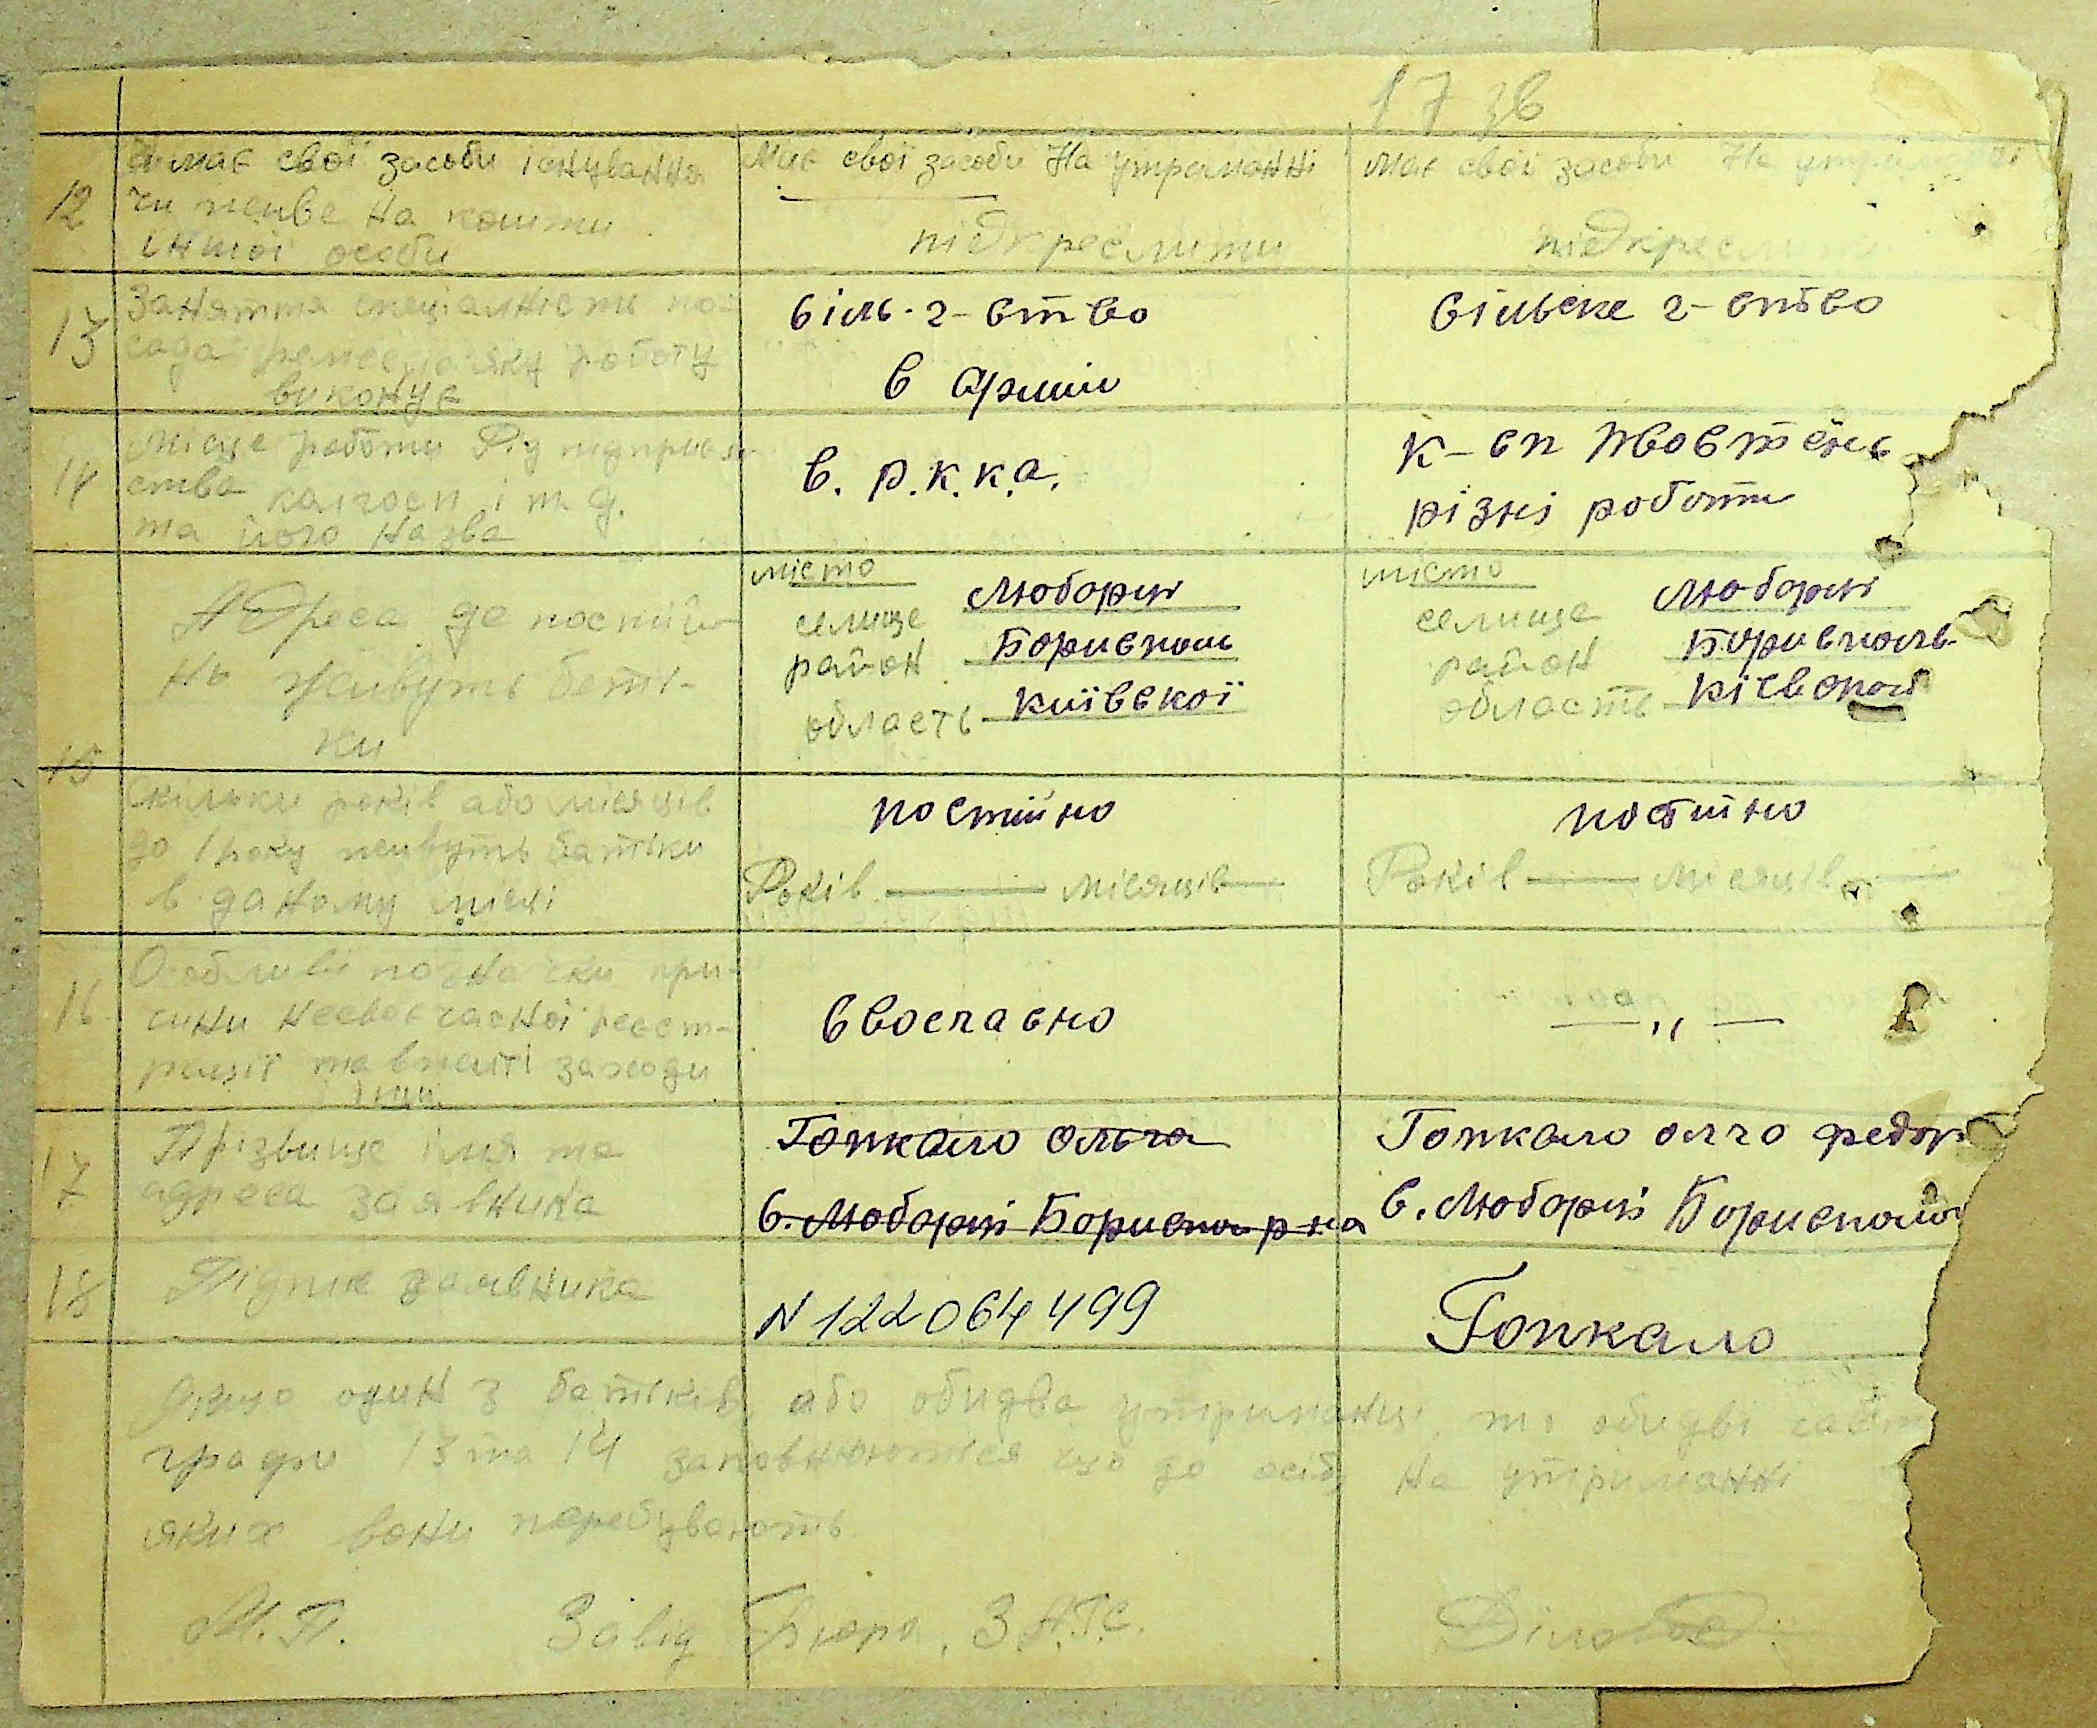 17 зв
12
чи має свої засоби існування
чи живе на кошти
іншої особи
Має свої засоби На утриманні
підкреслити
Має свої засоби На утриманні
підкреслити
13
Заняття спеціалність по-
сада ремесло яку роботу
виконує
сіль-г-ство
в армии
сільске г-ство
14
Місце роботи Рід підприєм
ства колгосп і т. д.
та його назва
в. р.к.к.а.
к-сп Жовтень
різні роботи
15
Адреса де постій-
но живуть бать-
ки
місто
селище Любарці
район Бориспол
область Київскої
місто
селище Любарці
район Бориспола
область Кієвской
Скильки років або місяців
до 1 року живуть батьки
в даному місці
постійно
Років — місяців —
постійно
Років — місяців —
16
Особливі познаки при-
чини несвоєчасної реєст-
рації та вжиті заходи
своєчасно
— „ —
17
Прізвище імя та
адреса заявника
Гопкало Ольга
с. Любарці Бориспол р-на
Гопкало олга федор
с. Любарці Бориспол
18
Підпис заявника
N 122064499
Гопкало
Якщо один з батьків або обидва утриманці, то обидві
графи 13 та 14 заповнюються що до осіб на утриманні
яких вони перебувають
М.П. Завід Бюро. ЗАГС. Діловод